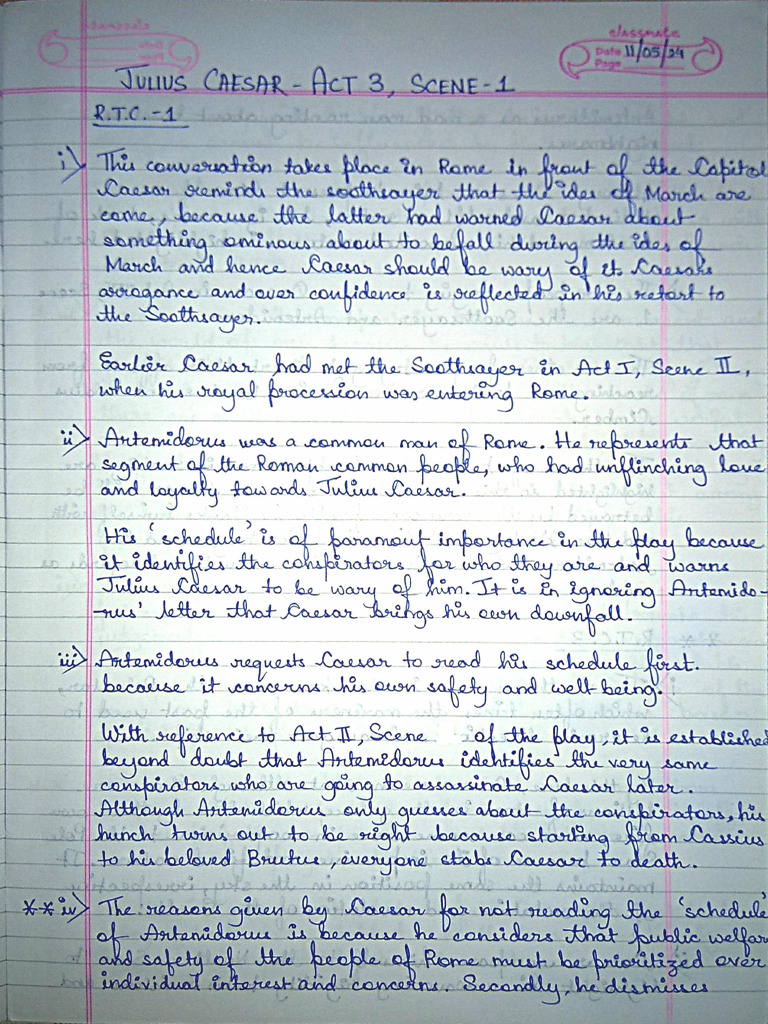 classmate
Date 11/05/24
Page
JULIUS CAESAR - ACT 3, SCENE-1
R.T.C.-1
i) This conversation takes place in Rome in front of the Capitol
Caesar reminds the soothsayer that the ides of March are
come, because the latter had warned Caesar about
something ominous about to befall during the ides of
March and hence Caesar should be wary of it. Caesar's
arrogance and over confidence is reflected in his retort to
the Soothsayer.
Earlier Caesar had met the Soothsayer in Act I, Scene II,
when his royal procession was entering Rome.
ii) Artemidorus was a common man of Rome. He represents that
segment of the Roman common people, who had unflinching love
and loyalty towards Julius Caesar.
His 'schedule' is of paramount importance in the play because
it identifies the conspirators for who they are and warns
Julius Caesar to be wary of him. It is in ignoring Artemido-
-rus' letter that Caesar brings his own downfall.
iii) Artemidorus requests Caesar to read his schedule first.
because it concerns his own safety and well-being.
With reference to Act II, Scene of the play, it is established
beyond doubt that Artemidorus identifies the very same
conspirators who are going to assassinate Caesar later.
Although Artemidorus only guesses about the conspirators, his
hunch turns out to be right because starting from Cassius
to his beloved Brutus, everyone stabs Caesar to death.
**iv) The reasons given by Caesar for not reading the 'schedule'
of Artemidorus is because he considers that public welfar
and safety of the people of Rome must be prioritized over
individual interest and concerns. Secondly, he dismisses